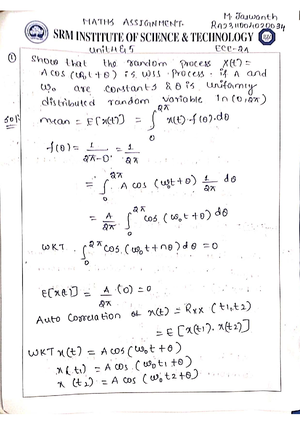 MATHS ASSIGNMENT.
M. Jaswanth
RA2311004020034
SRM INSTITUTE OF SCIENCE & TECHNOLOGY
Unit 4 & 5
ECE-2A
① Show that the random process X(t) =
A cos (ω₀t + θ) is WSS Process if A and
ω₀ are constants & θ is uniformly
distributed random variable in (0, 2π)
Sol:
mean = E[x(t)] = ∫₀^2π x(t). f(θ). dθ
f(θ) = 1/2π-0 = 1/2π
= ∫₀^2π A cos (ω₀t + θ) 1/2π dθ
= A/2π ∫₀^2π cos (ω₀t + θ) dθ
WKT. ∫₀^2π cos (ω₀t + nθ) dθ = 0
E[x(t)] = A/2π (0) = 0
Auto Correlation of x(t) = Rxx (t1, t2)
= E [x(t1). x(t2)]
WKT x(t) = A cos (ω₀t + θ)
x(t1) = A cos (ω₀t1 + θ)
x (t2) = A cos (ω₀t2 + θ)